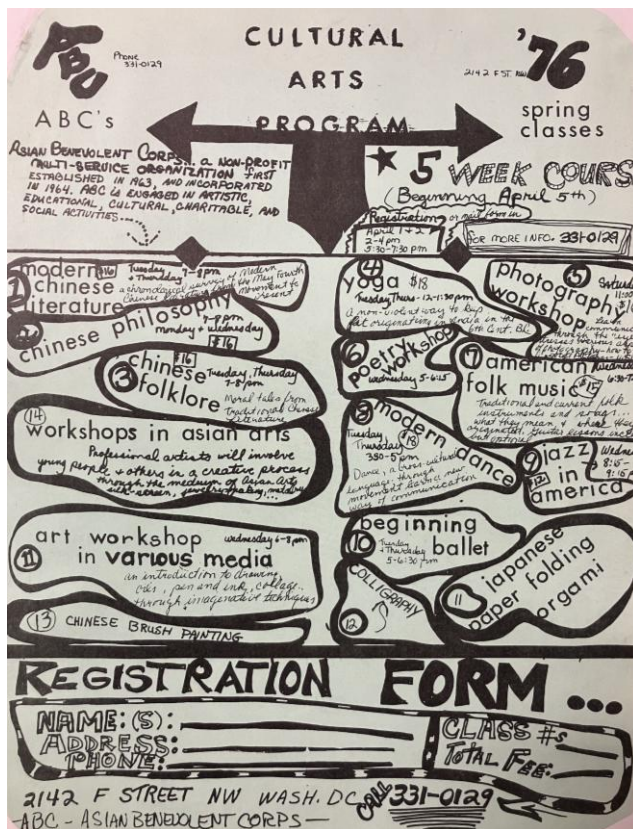 ABC
Phone
331-0129
CULTURAL
ARTS
PROGRAM
'76
2142 F ST. NW
ABC's
spring
classes
ASIAN BENEVOLENT CORPS... a NON-PROFIT
MULTI-SERVICE ORGANIZATION FIRST
ESTABLISHED IN 1963, AND INCORPORATED
IN 1964. ABC IS ENGAGED IN ARTISTIC,
EDUCATIONAL, CULTURAL, CHARITABLE, AND
SOCIAL ACTIVITIES....
5 WEEK COURS
(Beginning April 5th)
Registration or mail form in
April 1+2
2-4pm
5:30-7:30 pm
FOR MORE INFO. 331-0129
1
modern $16 Tuesday + Thursday 7-8pm
chinese
literature
a chronological survey of Modern
Chinese from the May Fourth
Movement to
present
2
chinese philosophy
7-8pm
monday + wednesday
$16
3
chinese
folklore
$16
Tuesday, Thursday
7-8pm
Moral tales from
Traditional Chinese
Literature
14
workshops in asian arts
Professional artists will involve
young people + others in a creative process
through the medium of Asian Arts
silk-screen, jewelry making,
11
art workshop wednesday 6-8pm
in various media
an introduction to drawing
oils, pen and ink, collage..
through imaginative techniques
13 CHINESE BRUSH PAINTING
4
yoga $18
Tuesday Thurs - 12-1:30pm
A non-violent way to keep
fit originating in India in the
6th Cent. BC
5
photography
workshop
Saturda
11:00
6
poetry
workshop
wednesday 5-6:15
7
american
folk music
$15
Wednesda
6:30-7
Traditional and current folk
instruments and songs...
what they mean, & where they
originated. Guitar lessons incl
but optional
8
modern dance
Tuesday,
Thursday
$18
3:30-5pm
Dance, a cross cultural
language, through
movement learn a new
way of communication
9
jazz
in
america
$12
Wedne
8:15-
9:15
10
beginning
ballet
Tuesday
+ Thursday
5-6:30 pm
12
COLLIGRAPHY
11
japanese
paper folding
orgami
REGISTRATION FORM...
NAME:(S):
ADDRESS:
PHONE:
CLASS #s
TOTAL FEE:
2142 F STREET NW WASH. DC CALL 331-0129
-ABC - ASIAN BENEVOLENT CORPS-